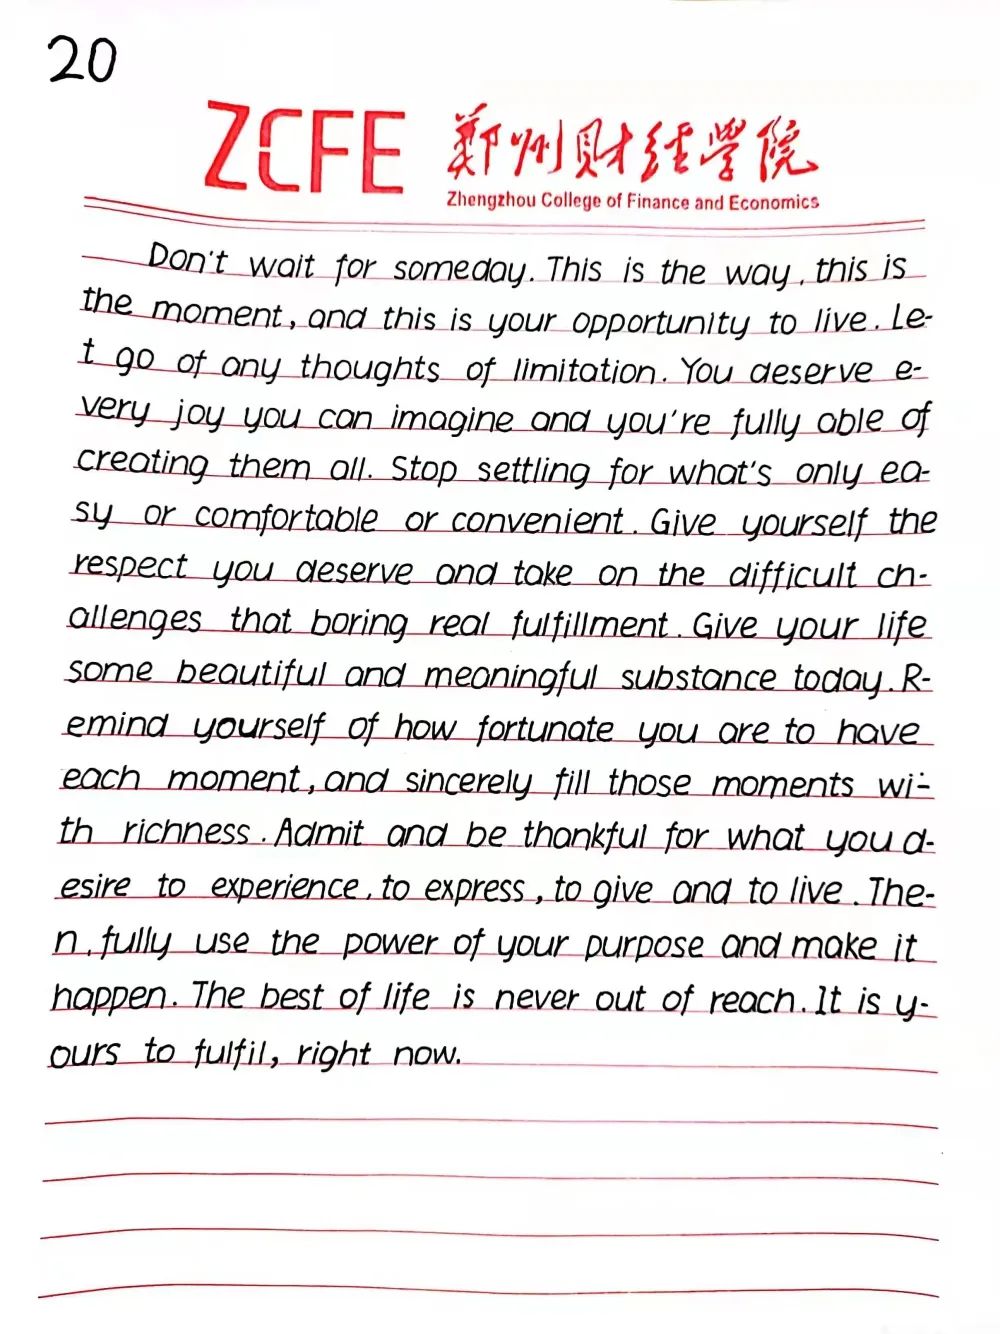 20
ZCFE 郑州财经学院
Zhengzhou College of Finance and Economics
Don't wait for someday. This is the way, this is
the moment, and this is your opportunity to live. Le-
t go of any thoughts of limitation. You deserve e-
very joy you can imagine and you're fully able of
creating them all. Stop settling for what's only ea-
sy or comfortable or convenient. Give yourself the
respect you deserve and take on the difficult ch-
allenges that boring real fulfillment. Give your life
some beautiful and meaningful substance today. R-
emind yourself of how fortunate you are to have
each moment, and sincerely fill those moments wi-
th richness. Admit and be thankful for what you d-
esire to experience, to express, to give and to live. The-
n, fully use the power of your purpose and make it
happen. The best of life is never out of reach. It is y-
ours to fulfil, right now.